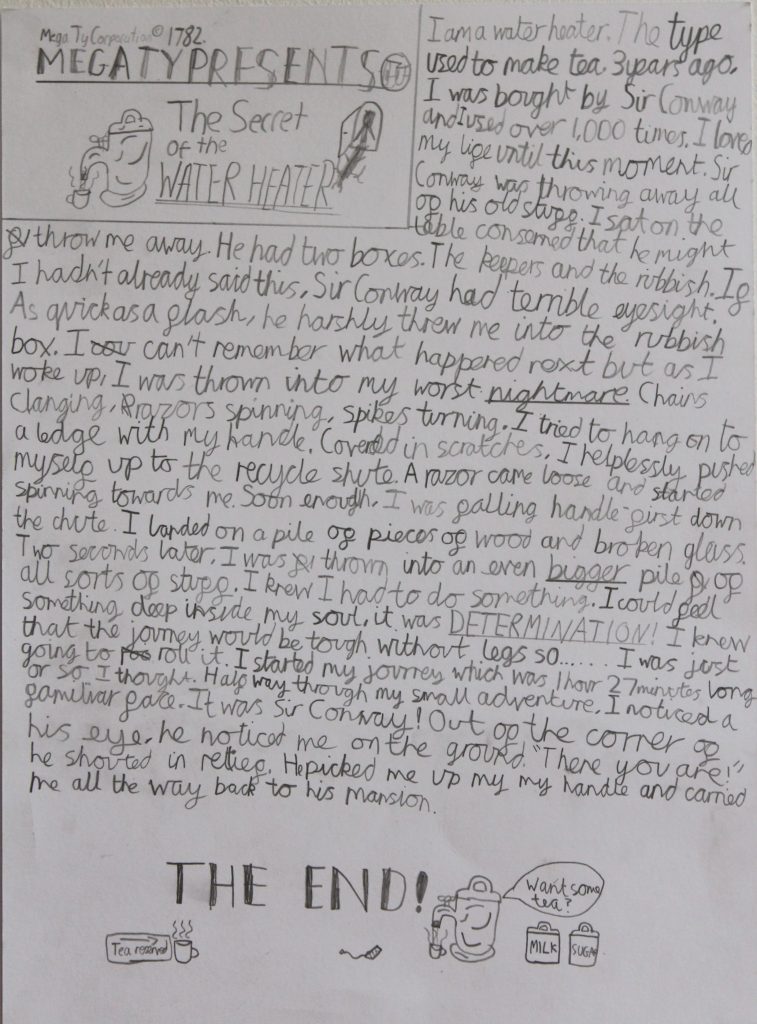 Mega Ty Corporation © 1782.
MEGA TY PRESENTS
The Secret
of the
WATER HEATER
I am a water heater. The type
used to make tea. 3 years ago,
I was bought by Sir Conway
and I used over 1,000 times. I loved
my life until this moment. Sir
Conway was throwing away all
of his old stuff. I sat on the
table conserned that he might
throw me away. He had two boxes. The keepers and the rubbish. If
I hadn't already said this, Sir Conway had terrible eyesight.
As quick as a flash, he harshly threw me into the rubbish
box. I can't remember what happened next but as I
woke up, I was thrown into my worst nightmare. Chains
Clanging, Razors spinning, spikes turning. I tried to hang on to
a ledge with my handle. Covered in scratches, I helplessly pushed
myself up to the recycle shute. A razor came loose and started
spinning towards me. Soon enough, I was falling handle-first down
the chute. I landed on a pile of pieces of wood and broken glass.
Two seconds later, I was thrown into an even bigger pile of
all sorts of stuff. I knew I had to do something. I could feel
something deep inside my soul, it was DETERMINATION! I knew
that the journey would be tough without legs so...... I was just
going to roll it. I started my journey which was 1 hour 27 minutes long
or so I thought. Half way through my small adventure, I noticed a
familiar face. It was Sir Conway! Out of the corner of
his eye, he noticed me on the ground. "There you are!"
he shouted in relief. He picked me up my my handle and carried
me all the way back to his mansion.
THE END!
Want some
tea?
Tea reserved
MILK
SUGAR